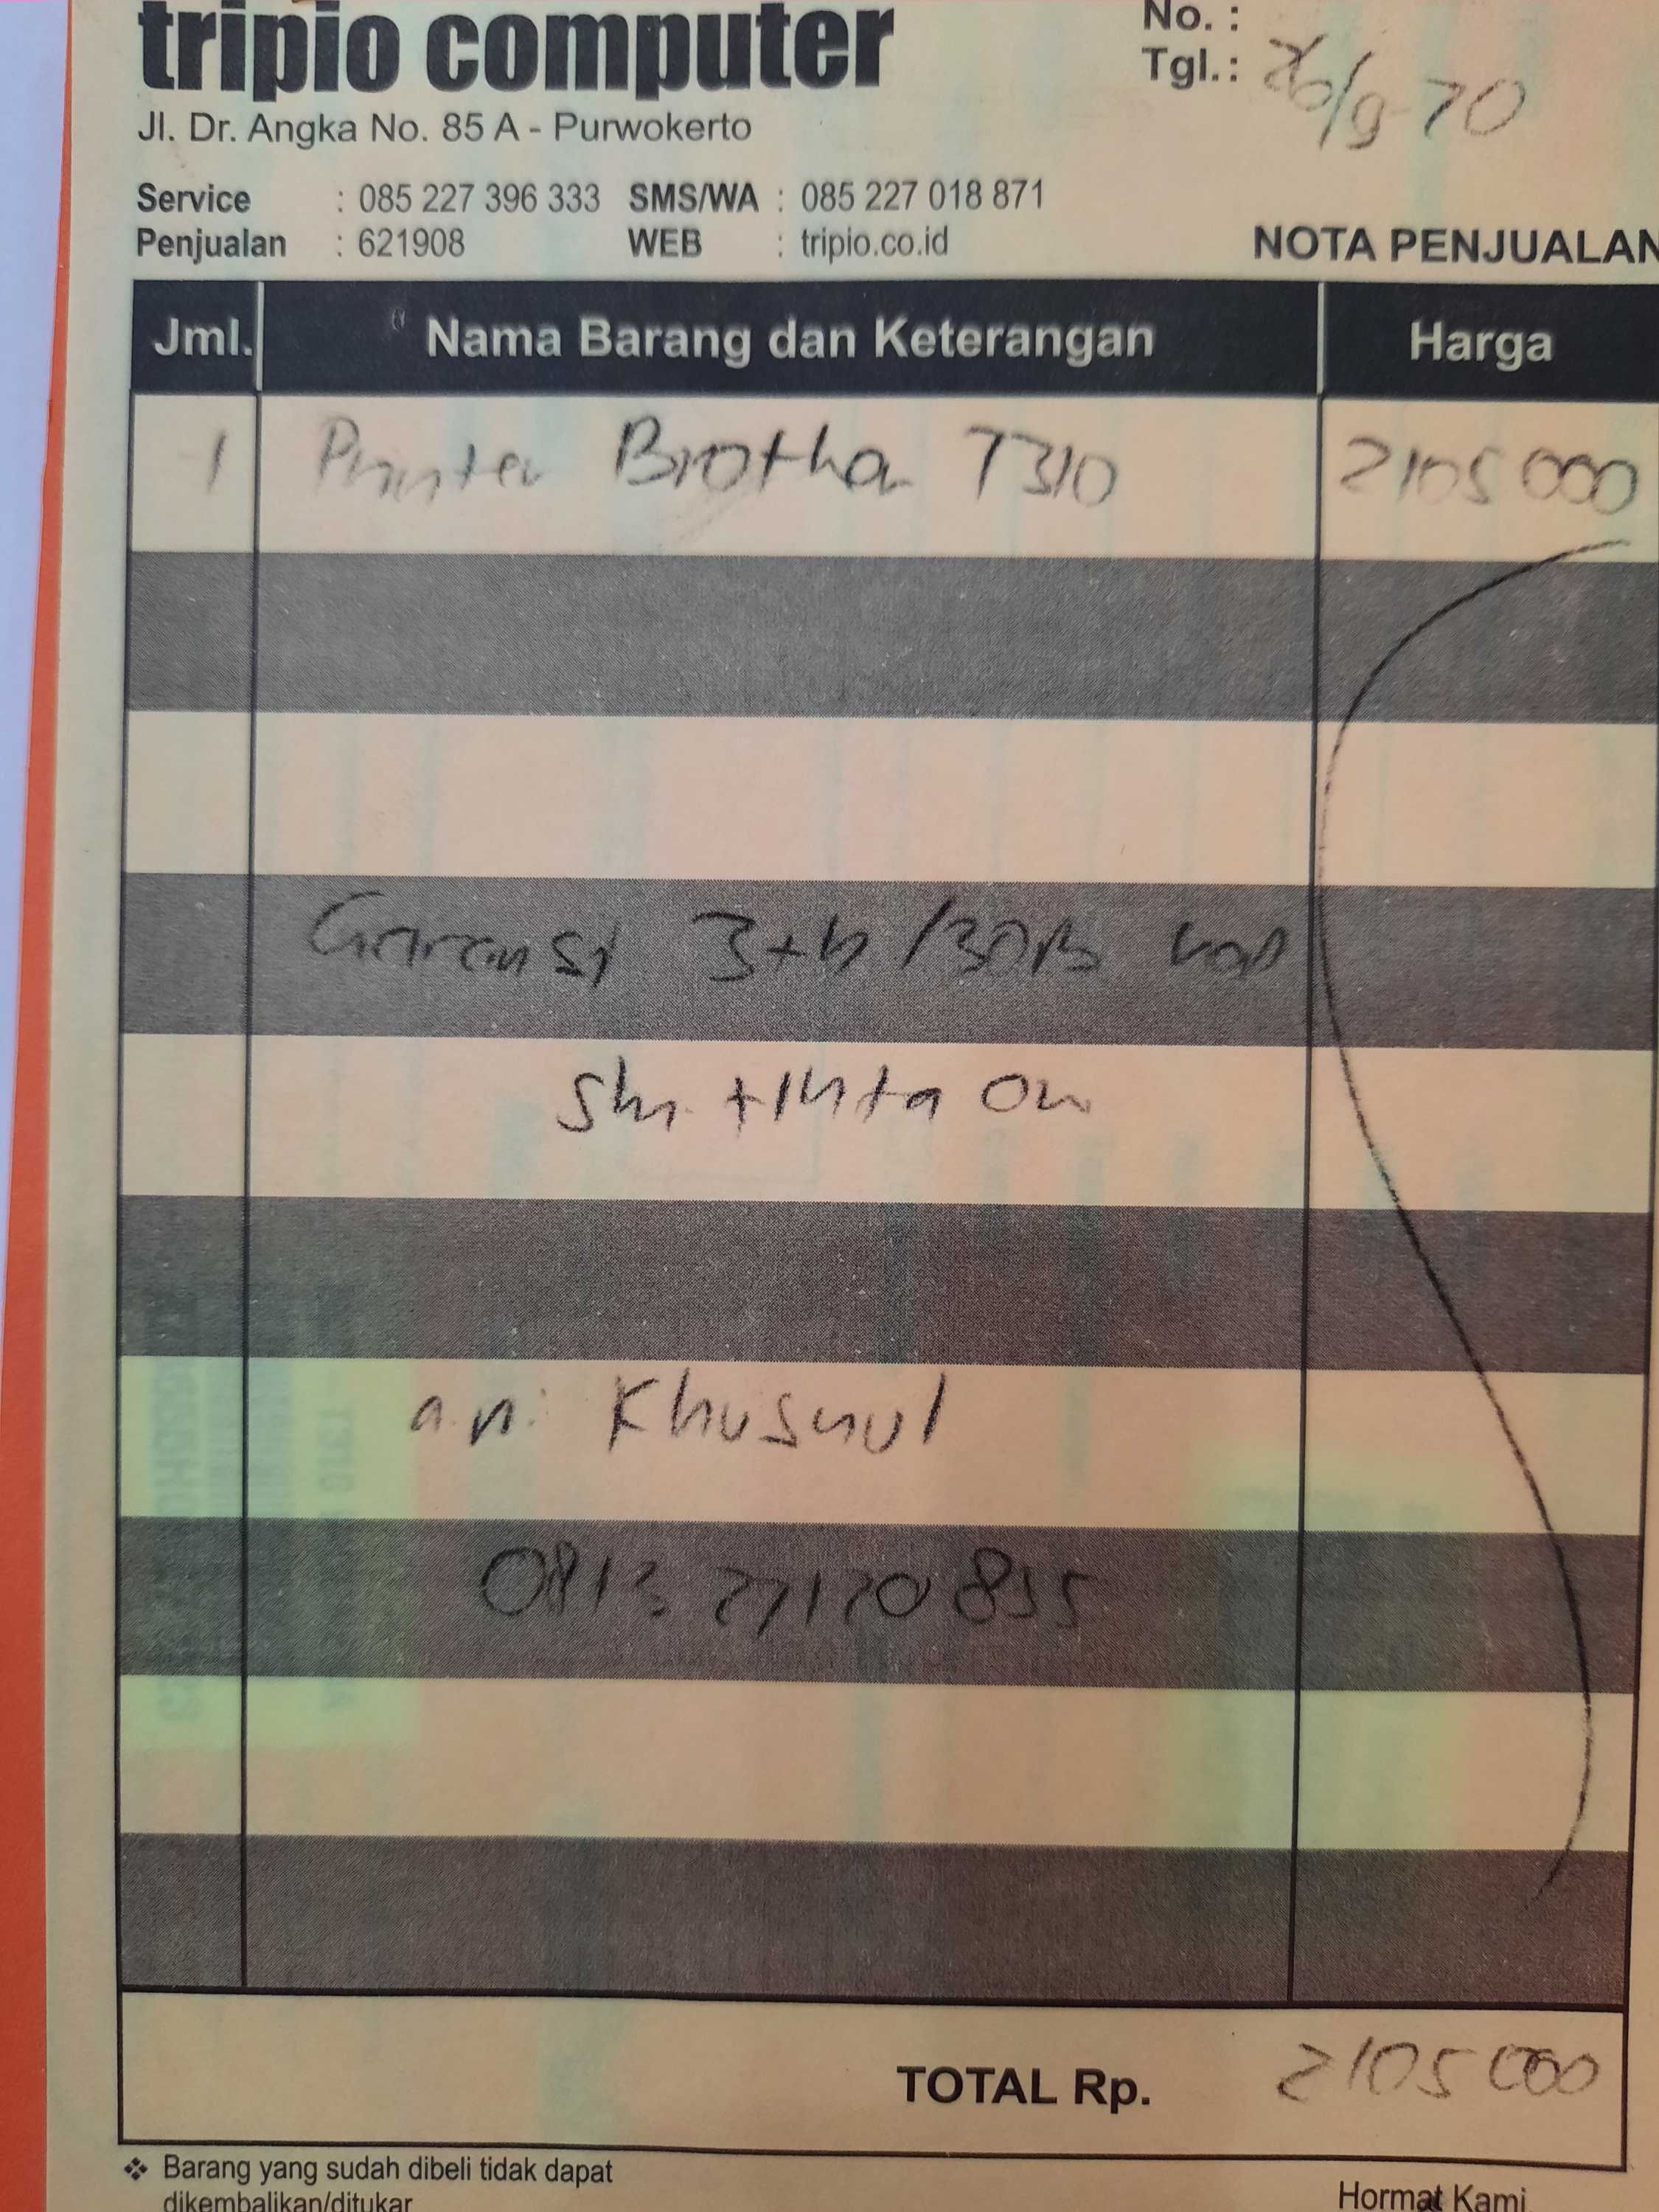 tripio computer
No. :
Tgl.: 26/9-20
Jl. Dr. Angka No. 85 A - Purwokerto
Service : 085 227 396 333 SMS/WA : 085 227 018 871
Penjualan : 621908 WEB : tripio.co.id
NOTA PENJUALAN
Jml. Nama Barang dan Keterangan Harga
1 Printer Brother T310 2105 000
Garansi 3th/30rb
+ tinta
a.n: Khusnul
0813 27120 855
TOTAL Rp. 2105 000
❖ Barang yang sudah dibeli tidak dapat
dikembalikan/ditukar
Hormat Kami